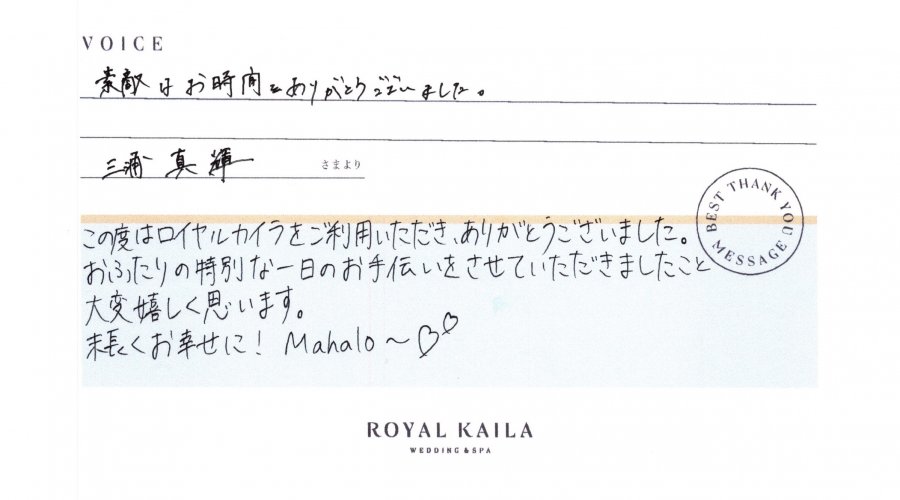 VOICE
素敵なお時間をありがとうございました。
三浦 真輝 さまより
BEST THANK YOU MESSAGE
この度はロイヤルカイラをご利用いただき、ありがとうございました。
おふたりの特別な一日のお手伝いをさせていただきましたこと
大変嬉しく思います。
末長くお幸せに! Mahalo~♡♡
ROYAL KAILA
WEDDING & SPA